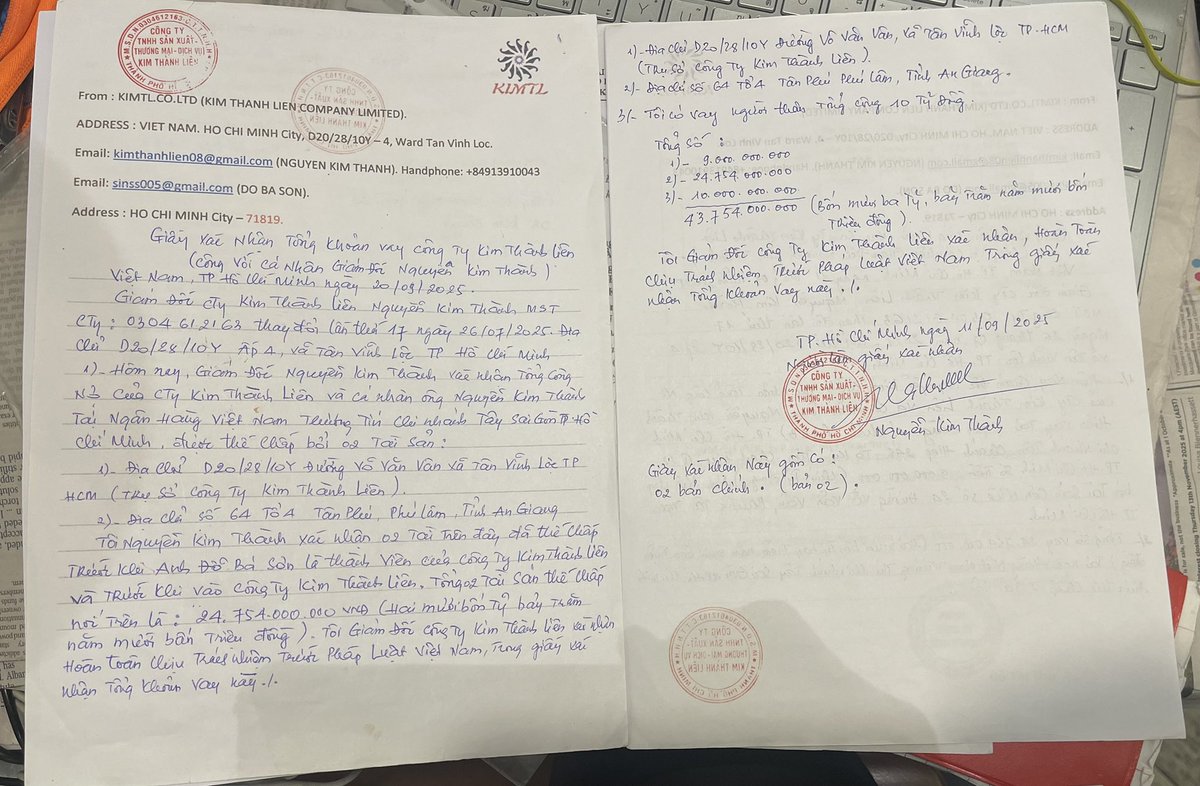 M.S.D.N:0304612163-C.T.T.N.H.H
CÔNG TY
TNHH SẢN XUẤT-
THƯƠNG MẠI-DỊCH VỤ
KIM THÀNH LIÊN
THÀNH PHỐ HỒ CHÍ MINH
KIMTL
From : KIMTL.CO.LTD (KIM THANH LIEN COMPANY LIMITED).
ADDRESS : VIET NAM. HO CHI MINH City, D20/28/10Y – 4, Ward Tan Vinh Loc.
Email: kimthanhlien08@gmail.com (NGUYEN KIM THANH). Handphone: +84913910043
Email: sinss005@gmail.com (DO BA SON).
Address : HO CHI MINH City – 71819.
Giấy xác Nhận Tổng khoản vay công Ty Kim Thành Liên
(cộng với cá Nhân Giám Đốc Nguyễn Kim Thành)
Việt Nam, TP Hồ Chí Minh ngày 20/09/2025.
Giám Đốc CTy Kim Thành Liên Nguyễn Kim Thành MST
CTy : 0304612163 thay đổi lần thứ 17 ngày 26/07/2025. Địa
chỉ D20/28/10Y, Ấp 4, xã Tân Vĩnh Lộc TP Hồ Chí Minh
1)- Hôm nay, Giám Đốc Nguyễn Kim Thành xác nhận Tổng Cộng
Nợ của CTy Kim Thành Liên và cá nhân ông Nguyễn Kim Thành
Tại Ngân Hàng Việt Nam Thương Tín Chi nhánh Tây Sài Gòn TP Hồ
Chí Minh, được thế chấp bởi 02 Tài Sản :
1)- Địa Chỉ D20/28/10Y Đường Võ Văn Vân xã Tân Vĩnh Lộc TP
HCM (Trụ Sở Công Ty Kim Thành Liên).
2)- Địa chỉ số 64 Tổ 4 Tân Phú, Phú Lâm, Tỉnh An Giang
Tôi Nguyễn Kim Thành xác nhận 02 Tài Trên đây đã thế chấp
Trước Khi Anh Đỗ Bá Sơn là thành Viên của Công Ty Kim Thành Liên
và Trước khi vào công Ty Kim Thành Liên, Tổng 02 Tài sản thế chấp
nói Trên là : 24.754.000.000 VNĐ (Hai mười bốn Tỷ bảy trăm
năm mười bốn Triệu đồng). Tôi Giám Đốc công Ty Kim Thành Liên xác nhận
Hoàn toàn chịu Trách Nhiệm Trước Pháp Luật Việt Nam, Trong giấy xác
nhận Tổng khoản vay này ./.
1)- Địa chỉ D20/28/10Y Đường Võ Văn Vân, xã Tân Vĩnh Lộc TP-HCM
(Trụ Sở Công Ty Kim Thành Liên).
2/- Địa chỉ số 64 Tổ 4 Tân Phú Phú Lâm, Tỉnh An Giang.
3/- Tôi có vay người thân Tổng cộng 10 Tỷ đồng.
Tổng số :
1)- 9.000.000.000
2)- 24.754.000.000
3)- 10.000.000.000
43.754.000.000 (Bốn mươi ba Tỷ, bảy Trăm năm mười bốn
Triệu đồng).
Tôi Giám Đốc công Ty Kim Thành Liên xác nhận, Hoàn Toàn
Chịu Trách Nhiệm Trước Pháp Luật Việt Nam Trong giấy xác
nhận Tổng Khoản Vay này ./.
TP. Hồ Chí Minh ngày 11/09/2025
Người làm giấy xác nhận
M.S.D.N:0304612163-C.T.T.N.H.H
CÔNG TY
TNHH SẢN XUẤT-
THƯƠNG MẠI-DỊCH VỤ
KIM THÀNH LIÊN
THÀNH PHỐ HỒ CHÍ MINH
Nguyễn Kim Thành
Giấy xác nhận Này gồm có :
02 bản chính. (bản 02).